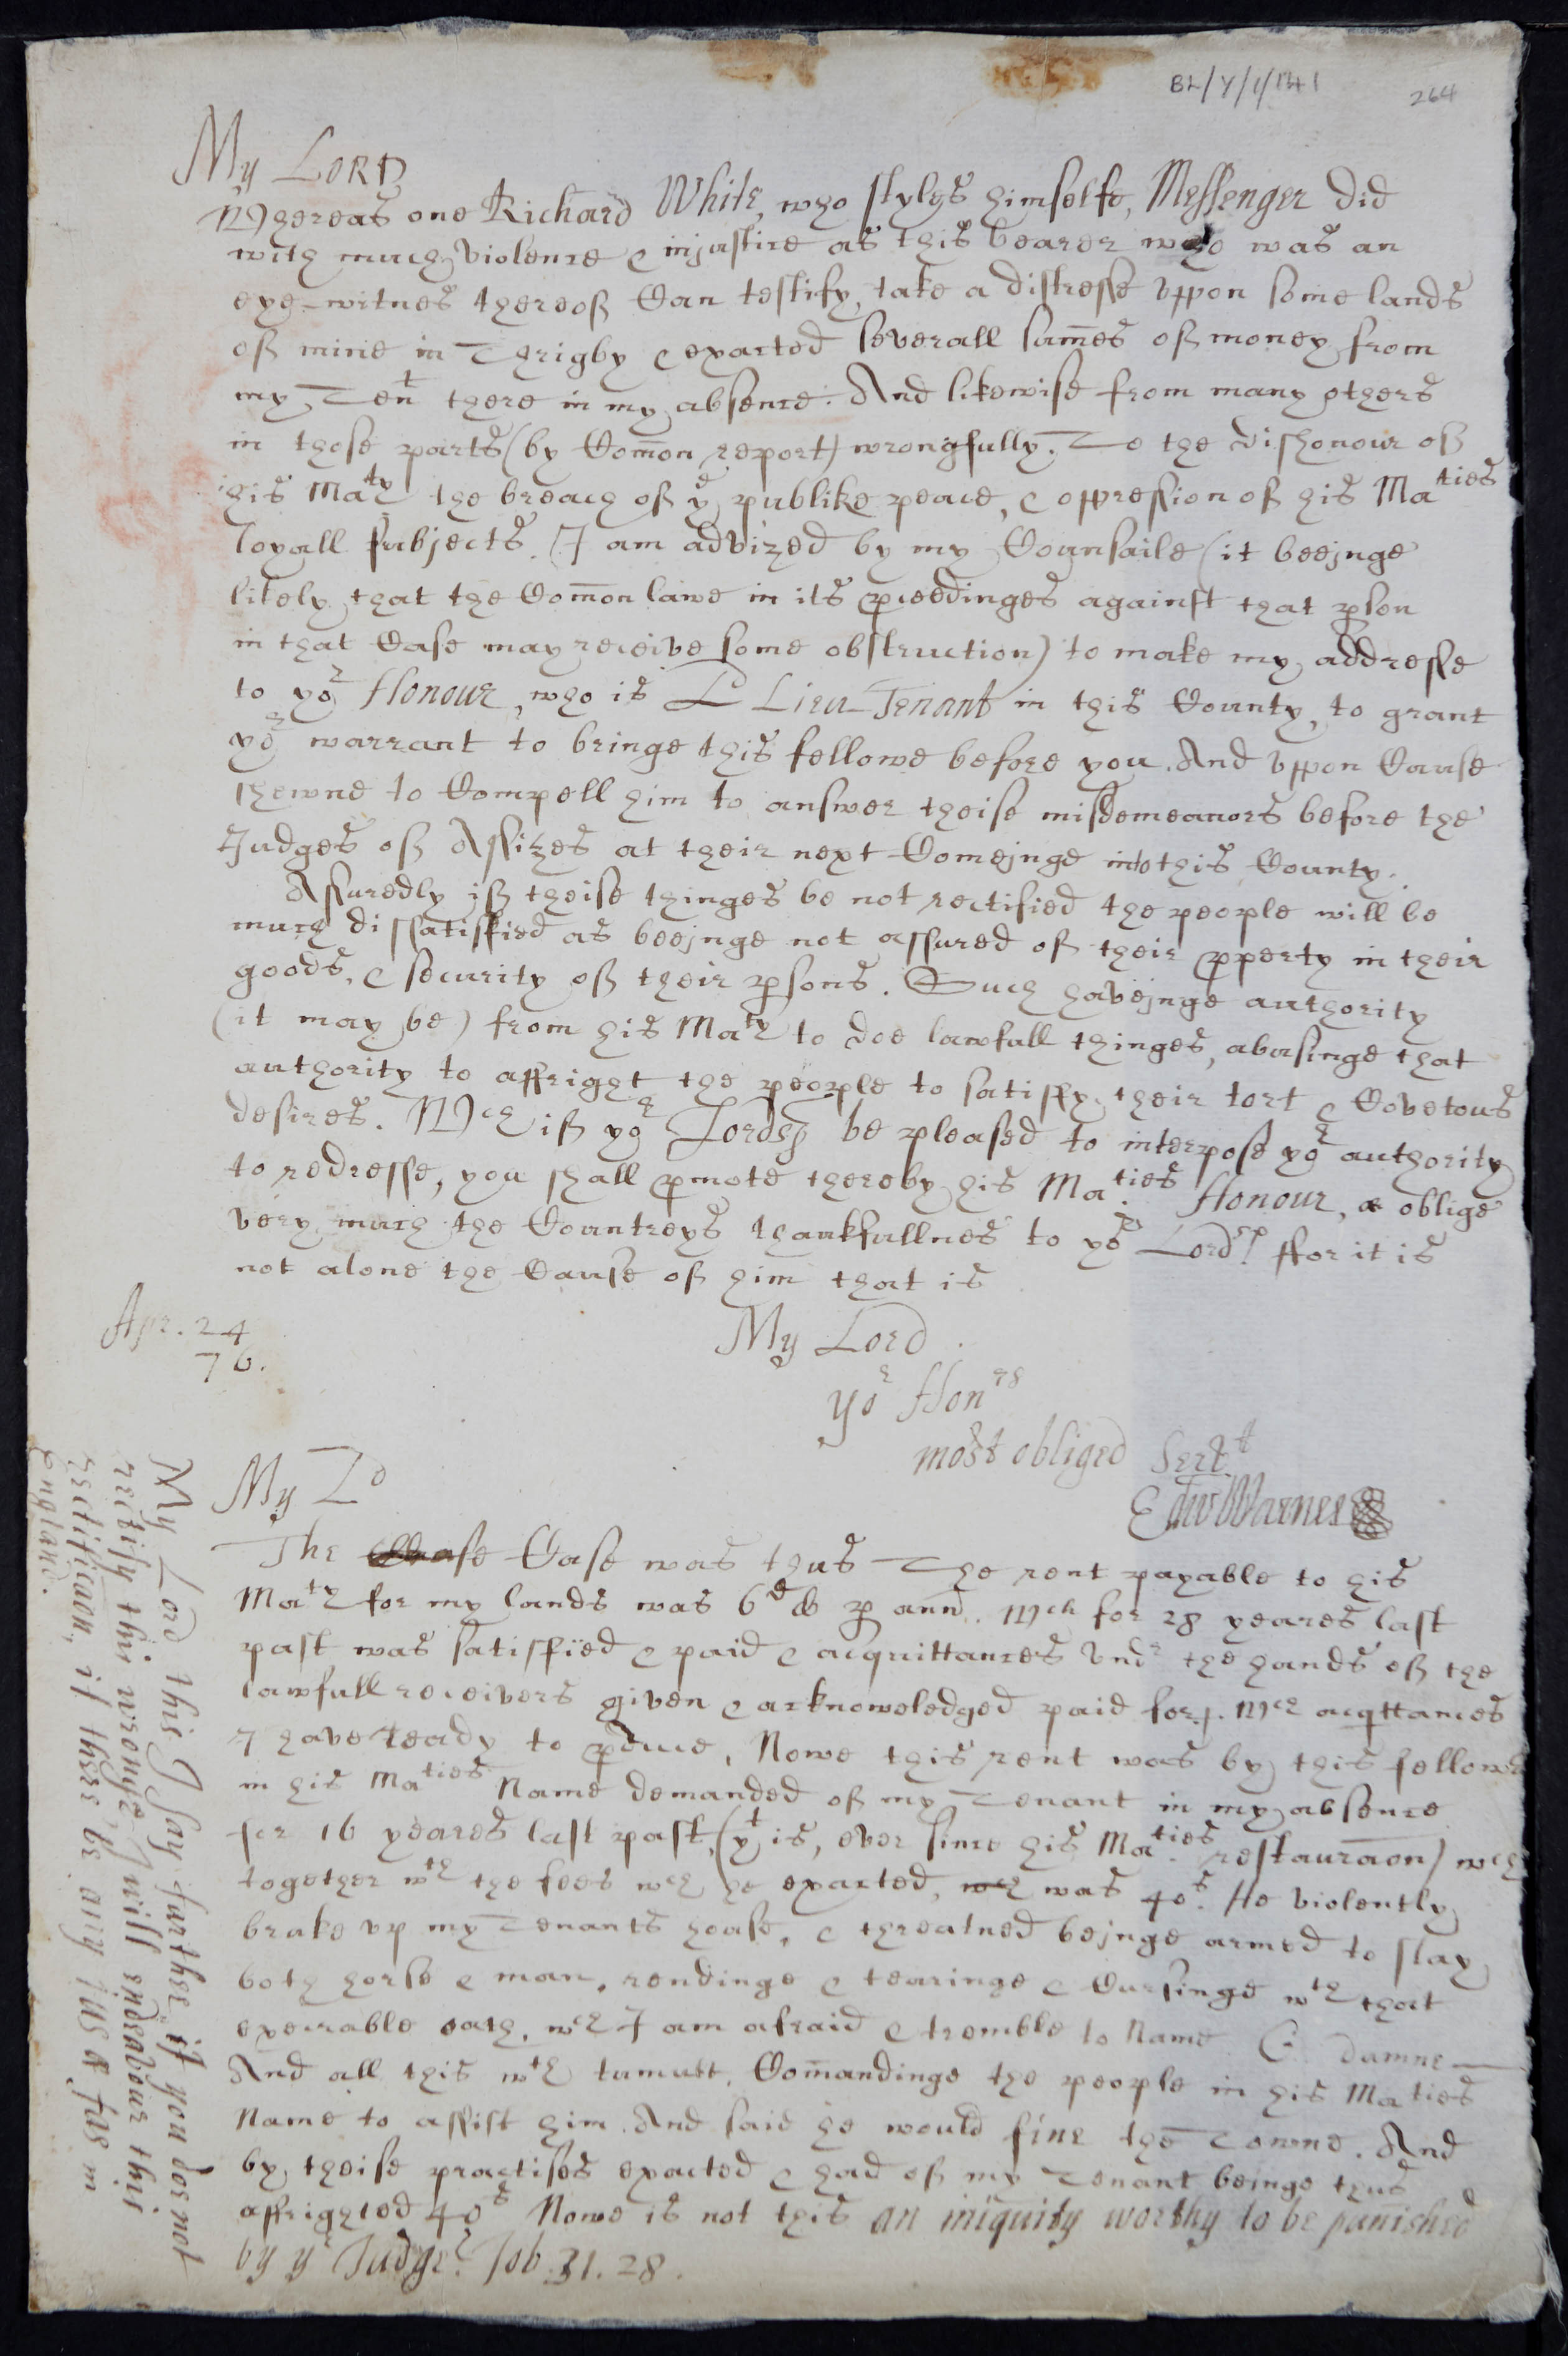 BL/Y/1/141
264
My LORD
Whereas one Richard White, who styles himselfe, Messenger did
with much violence & injustice as this bearer who was an
eye-witnes thereof Can testify, take a distresse vppon some lands
of mine in Thrigby & exacted severall sum̄es of money from
my Ten^t there in my absence. And likewise from many others
in those parts (by Com̄on report) wrongfully. To the dishonour of
his Ma^ty the breach of y^e publike peace, & oppression of his Ma^ties
loyall subjects. I am advized by my Counsaile (it beejnge
likely that the Com̄on lawe in its p̱ceedinges against that p̱son
in that Case may receive some obstruction) to make my addresse
to yo^r Honour, who is L^d Lieu-Tenant in this County, to grant
yo^r warrant to bringe this fellowe before you. And vppon Cause
shewne to Compell him to answer theise misdemeanors before the
Judges of Assizes at their next Comejnge into this County.
Assuredly if theise thinges be not rectified the people will be
much dissatisfied as beejnge not assured of their p̱perty in their
goods, & security of their p̱sons. Such havejnge authority
(it may be) from his Ma^ty to doe lawfull thinges, abusinge that
authority to affright the people to satisfy their tort & Covetous
desires. W^ch if yo^r Lordsp be pleased to interpose yo^r authority
to redresse, you shall p̱mote thereby his Ma^ties Honour, & oblige
very much the Countreys thankfullnes to yo^r Lord^sp. ffor it is
not alone the Cause of him that is
Apr. 24
76.
My Lord
yo^r Hon^rs
most obliged Serv^t
Edw Warnes
My L^d
The Case was thus The rent payable to his
Ma^ty for my lands was 6^d ob p̱ ann̄. W^ch for 28 yeares last
past was satisfied & paid & acquittances vnd^r the hands of the
lawfull receivers given & acknowledged paid for. W^ch acq^ttances
I have ready to p̱duce, Nowe this rent was by this fellowe
in his Ma^ties Name demanded of my Tenant in my absence
for 16 yeares last past, (y^t is, ever since his Ma^ties restauraōn) w^ch
together w^th the fees w^ch he exacted, w^ch was 40^s. He violently
brake vp my Tenants house, & threatned bejnge armed to slay
both horse & man, rendinge & tearinge & Cursinge w^th that
execrable oath, w^ch I am afraid & tremble to Name G. damne—
And all this w^th tumult, Com̄andinge the people in his Ma^ties
Name to assist him. And said he would fine the Towne. And
by theise practises exacted & had of my Tenant beinge thus
affrighted 40^s Nowe is not this an iniquity worthy to be punished
by y^e Judge? Job. 31. 28.
My Lord this I say further if you doe not
rectify this wronge, I will endeavour this
rectificaōn, if there be any ius & fas in
England.